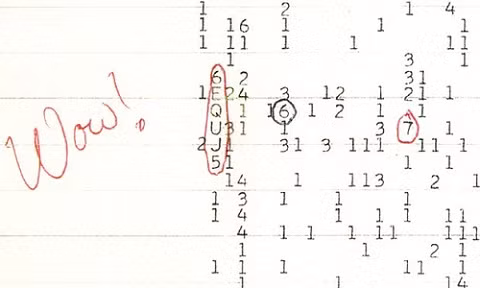 1 2 1 4
1 16 1 1 1
1 11 1 1 11
1 3 1
6 2 31
1E24 3 12 1 211
Q 1 16 1 2 1 11
Wow! U31 1 3 7 1
2J1 31 3 111 11 1
51 1 1
14 1 113 2 1
1 3 1 1 1
1 4 1 1 1 11
4 1 1 1 11 111
1 1 2 1
1 1 1 1 11 1
1 1 14